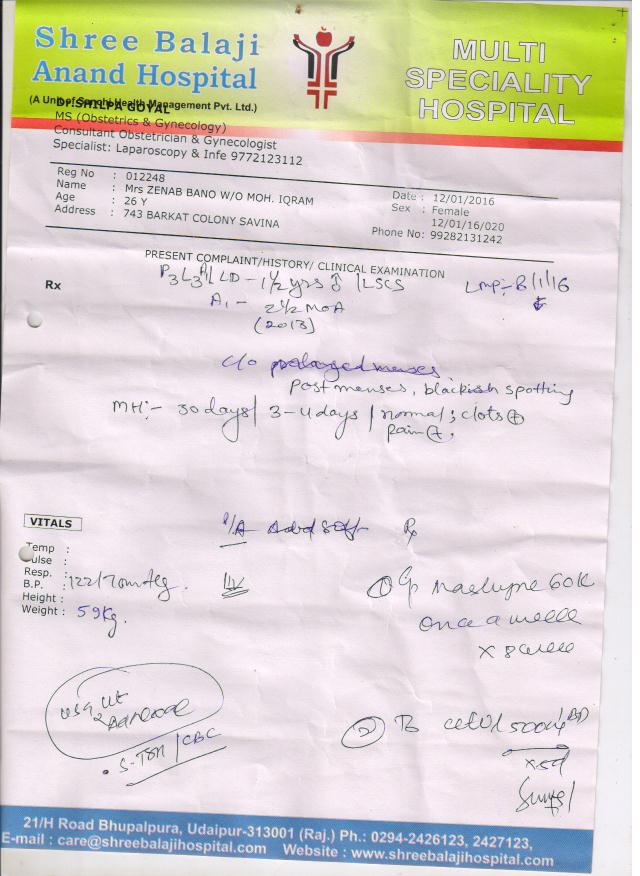 Shree Balaji
Anand Hospital
(A Unit of Sanghi Health Management Pvt. Ltd.)
MULTI
SPECIALITY
HOSPITAL
Dr. SHILPA GOYAL
MS (Obstetrics & Gynecology)
Consultant Obstetrician & Gynecologist
Specialist: Laparoscopy & Infe 9772123112
Reg No : 012248
Name : Mrs ZENAB BANO W/O MOH. IQRAM
Age : 26 Y
Address : 743 BARKAT COLONY SAVINA
Date : 12/01/2016
Sex : Female
12/01/16/020
Phone No: 99282131242
PRESENT COMPLAINT/HISTORY/ CLINICAL EXAMINATION
Rx
P3L3A1 LD - 1 1/2 yrs LSCS
LMP:- 8/1/16
A1 - 2 1/2 MOA
(2013)
c/o prolonged menses
post menses, blackish spotting
MH:- 30 days/ 3-4 days / normal; clots ⊕
pain ⊕
P/A
Rx
VITALS
Temp :
Pulse :
Resp. :
B.P. : 122/70mmHg
Height :
Weight : 59Kg.
① 60K
once a week
x 8 week
USG
S-TSH/CBC
② 500mg BD
x 5d
21/H Road Bhupalpura, Udaipur-313001 (Raj.) Ph.: 0294-2426123, 2427123,
E-mail : care@shreebalajihospital.com Website : www.shreebalajihospital.com